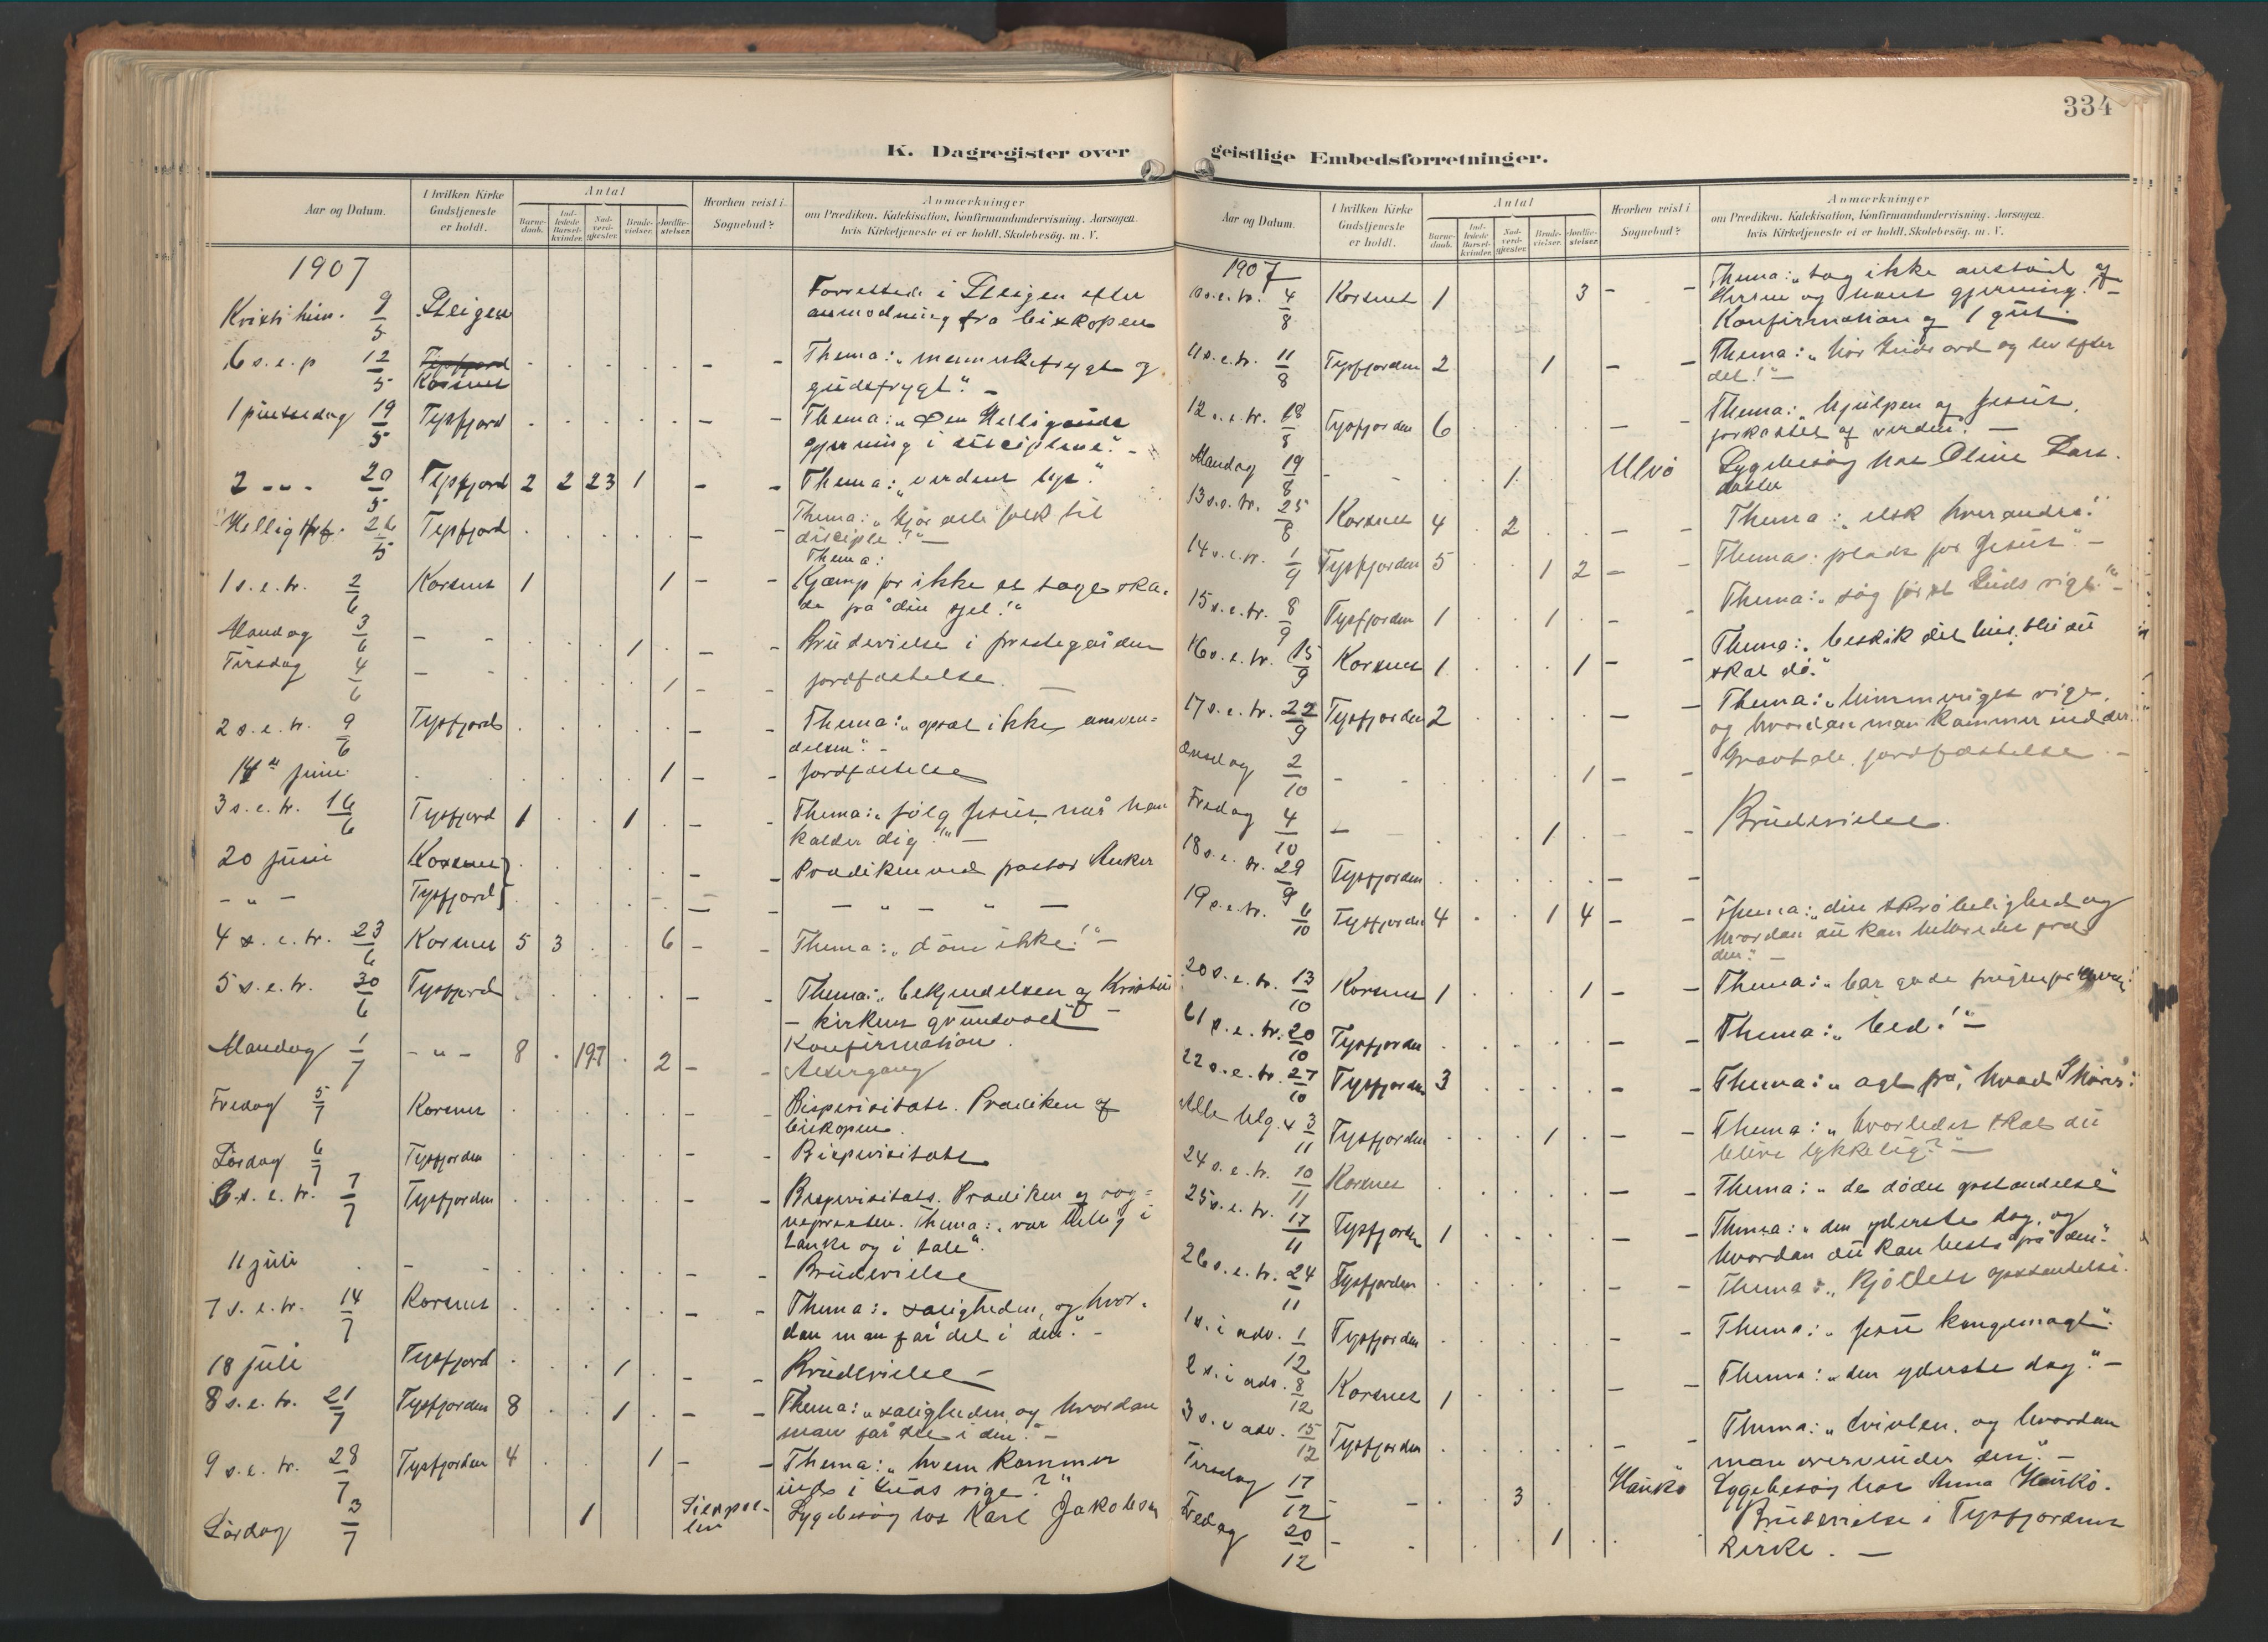 334
K. Dagregister over
Aar og Datum.
I hvilken Kirke Gudstjeneste er holdt.
Antal
Barne-daab.
Ind-ledede Barsel-kvinder.
Nad-verd-gjæster.
Brude-vielser.
Jordfæ-stelser.
Hvorhen reist i Sognebud?
Anmærkninger
om Prædiken, Katekisation, Konfirmandundervisning. Aarsagen,
hvis Kirketjeneste ei er holdt. Skolebesög. m. V.
1907
Kristi him. 9/5 Steigen Forrettede i Steigen efter
anmodning fra biskopen
6 s. e. p 12/5 Tysfjord - - Thema: „menneskefrygt og
Korsnes gudsfrygt." -
1 pinsedag 19/5 Tysfjord - - Thema: „Den Helligaands
gjerning i disciplene". -
2 - " - 20/5 Tysfjord 2 2 23 1 - - Thema: „verdens lys".
Hellig trf. 26/5 Tysfjord - - Thema: „Gjør alle folk til
disciple!" -
Thema:
1 s. e. tr. 2/6 Korsnes 1 1 - - Kjæmp for ikke at tage ska-
de på din sjel!"
Mandag 3/6 - - 1 - - Brudevielse i prestegården
Tirsdag 4/6 - - 1 - - jordfæstelse. -
2 s. e. tr. 9/6 Tysfjord - - Thema: „opsæt ikke omven=
delsen". -
14de juni 1 - - jordfæstelse
3 s. e. tr. 16/6 Tysfjord 1 1 - - Thema: „følg Jesus, når han
kalder dig!" -
20 juni Korsnes - - Prædiken ved pastor Anker
- " - Tysfjord - - - " - " -
4 s. e. tr. 23/6 Korsnes 5 3 6 - - Thema: „døm ikke!" -
5 s. e. tr. 30/6 Tysfjord - - Thema: „bekjendelsen af Kristus
- kirkens grundvold" -
Konfirmation.
Mandag 1/7 - " - 8 197 2 - - Altergang
Fredag 5/7 Korsnes - - Bispevisitats. Prædiken af
biskopen.
Lördag 6/7 Tysfjorden - - Bispevisitats
6 s. e. tr. 7/7 Tysfjorden - - Bispevisitats. Prædiken af sog=
nepresten. Thema: „vær hellig i
tanke og i tale".
11 juli - - - - Brudevielse
7 s. e. tr. 14/7 Korsnes - - Thema: „saligheden, og hvor-
dan man får del i den." -
18 juli Tysfjord 1 - - Brudevielse -
8 s. e. tr. 21/7 Tysfjorden 8 1 - - Thema: „saligheden og hvordan
man får del i den." -
9 s. e. tr. 28/7 Tysfjorden 4 1 - - Thema: „hvem kommer
ind i Guds rige?"
Lördag 3/7 1 Sygebesøg hos Karl Jakobsen
geistlige Embedsforretninger.
Aar og Datum.
I hvilken Kirke Gudstjeneste er holdt.
Antal
Barne-daab.
Ind-ledede Barsel-kvinder.
Nad-verd-gjæster.
Brude-vielser.
Jordfæ-stelser.
Hvorhen reist i Sognebud?
Anmærkninger
om Prædiken, Katekisation, Konfirmandundervisning. Aarsagen,
hvis Kirketjeneste ei er holdt. Skolebesög. m. V.
1907
10 s. e. tr. 4/8 Korsnes 1 3 - - Thema: „tag ikke anstød af
Herren og hans gjerning." -
Konfirmation af 1 gut.
11 s. e. tr. 11/8 Tysfjorden 2 1 - - Thema: „hør Guds ord og lev efter
det!" -
12 s. e. tr. 18/8 Tysfjorden 6 - - Thema: „hjælpen af Jesus,
forkastet af verden". -
Mandag 19/8 - - 1 Ulvø Sygebesøg hos Oline Lars-
datter
13 s. e. tr. 25/8 Korsnes 4 2 - - Thema: „elsk hverandre!"
14 s. e. tr. 1/9 Tysfjorden 5 1 2 - Thema: plads for Jesus" -
15 s. e. tr. 8/9 Tysfjorden 1 1 - Thema: „søg først Guds rige!" -
16 s. e. tr. 15/9 Korsnes 1 1 - - Thema: „beskik dit hus, thi du
skal dø."
17 s. e. tr. 22/9 Tysfjorden 2 - - Thema: „himmeriges rige,
og hvordan man kommer ind der."
Onsdag 2/10 - - 1 - - Gravtale. jordfæstelse. -
Fredag 4/10 - - 1 - - Brudevielse.
18 s. e. tr. 29/9 Tysfjorden - -
19 s. e. tr. 6/10 Tysfjorden 4 1 4 - - Thema: „din skrøbelighed og
hvordan du kan helbredes fra
den". -
20 s. e. tr. 13/10 Korsnes 1 1 - - Thema: „bær gode frugter
21 s. e. tr. 20/10 Tysfjorden - - Thema: „bed!" -
22 s. e. tr. 27/10 Tysfjorden 3 - - Thema: „agt på, hvad I hører!
Alle hlg. 3/11 Tysfjorden 1 - - Thema: „hvorledes skal du
blive lykkelig?" -
24 s. e. tr. 10/11 Korsnes - - Thema: „de dødes opstandelse"
25 s. e. tr. 17/11 Tysfjorden 1 - - Thema: „den yderste dag, og
hvordan du kan bestå på den."
26 s. e. tr. 24/11 Tysfjorden - - Thema: „Kjødets opstandelse.
1 s. i adv. 1/12 Tysfjorden - - Thema: „Jesu kongemagt".
2 s. i adv. 8/12 Korsnes 1 - - Thema: „den yderste dag." -
3 s. i adv. 15/12 Tysfjorden - - Thema: „tvivlen, og hvordan
man overvinder den". -
Tirsdag 17/12 - - 3 Haukø Sygebesøg hos Anna Haukø.
Fredag 20/12 - - 1 Brudevielse i Tysfjordens
kirke. -